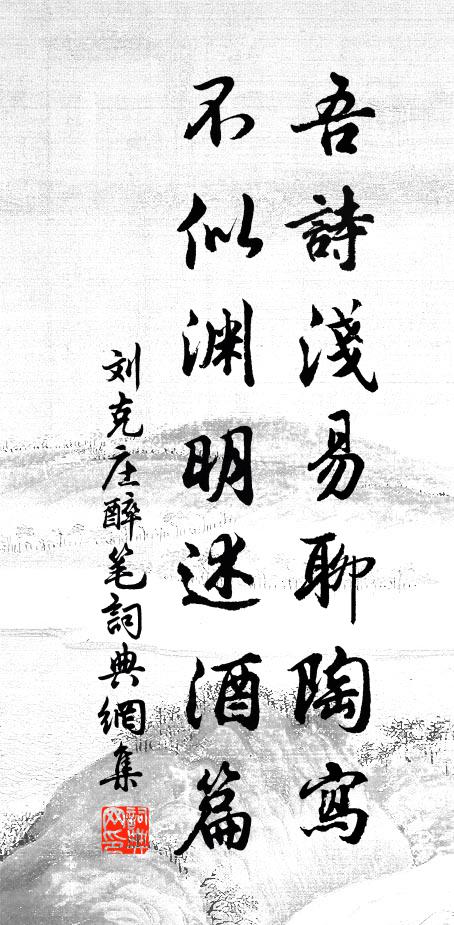 吾詩淺易聊陶寫
不似渊明述酒篇
刘克庄醉笔詞典網集